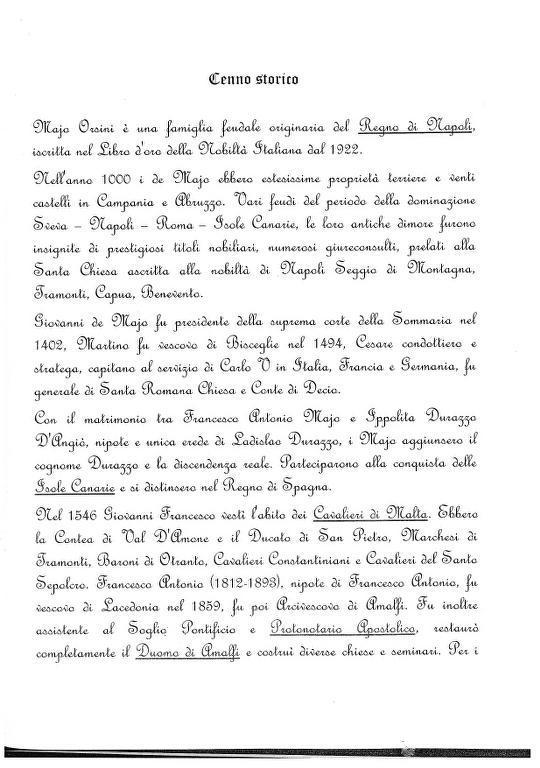 Cenno storico
Majo Orsini è una famiglia feudale originaria del Regno di Napoli,
iscritta nel Libro d'oro della Nobiltà Italiana dal 1922.
Nell'anno 1000 i de Majo ebbero estesissime proprietà terriere e venti
castelli in Campania e Abruzzo. Vari feudi del periodo della dominazione
Sveva – Napoli – Roma – Isole Canarie, le loro antiche dimore furono
insignite di prestigiosi titoli nobiliari, numerosi giureconsulti, prelati alla
Santa Chiesa ascritta alla nobiltà di Napoli Seggio di Montagna,
Tramonti, Capua, Benevento.
Giovanni de Majo fu presidente della suprema corte della Sommaria nel
1402, Martino fu vescovo di Bisceglie nel 1494, Cesare condottiero e
stratega, capitano al servizio di Carlo V in Italia, Francia e Germania, fu
generale di Santa Romana Chiesa e Conte di Decio.
Con il matrimonio tra Francesco Antonio Majo e Ippolita Durazzo
D'Angiò, nipote e unica erede di Ladislao Durazzo, i Majo aggiunsero il
cognome Durazzo e la discendenza reale. Parteciparono alla conquista delle
Isole Canarie e si distinsero nel Regno di Spagna.
Nel 1546 Giovanni Francesco vestì l'abito dei Cavalieri di Malta. Ebbero
la Contea di Val D'Amone e il Ducato di San Pietro, Marchesi di
Tramonti, Baroni di Otranto, Cavalieri Constantiniani e Cavalieri del Santo
Sepolcro. Francesco Antonio (1812-1893), nipote di Francesco Antonio, fu
vescovo di Lacedonia nel 1859, fu poi Arcivescovo di Amalfi. Fu inoltre
assistente al Soglio Pontificio e Protonotario Apostolico, restaurò
completamente il Duomo di Amalfi e costruì diverse chiese e seminari. Per i